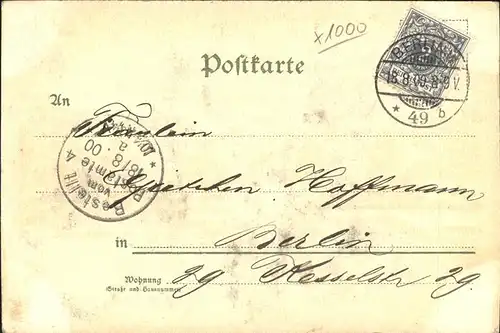 x1000
Postkarte
BERLIN
18.8.00.8-9V.
* 49 b
An
Fräulein
Bestellt
vom
Postamte 4
18/8.00
Gretchen Hoffmann
in Berlin
Wohnung 29 Kesselstr 29.
Straße und Hausnummer